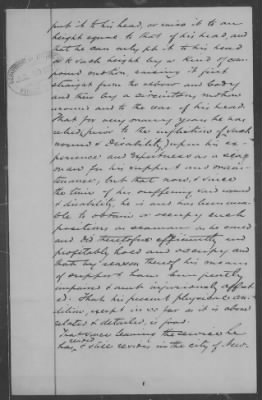 put it to his head, or raise it to an
height equal to that of his head, and
that he can only put it to his head
or to such height by a kind of com-
pound motion, raising it first
straight from the elbow and body
and then by a circuitous motion
around and to the rear of his head.
That for very many years he was
relied, prior to the infliction of such
wound & disability, upon his ex-
perience and expertness as a sea-
man for his support and main-
tenance, but that now, & since
the time of his suffering said wound
& disability, he is and has been una-
ble to obtain or occupy such
positions as seaman as he could
and did theretofore efficiently and
profitably hold and occupy, and
that by reason thereof his means
of support have been greatly
impaired & most injuriously affect-
ed. That his present physical con-
dition, except in so far as it is above
related & detailed, is good.
That since leaving the service he
has resided & still resides in the city of New-